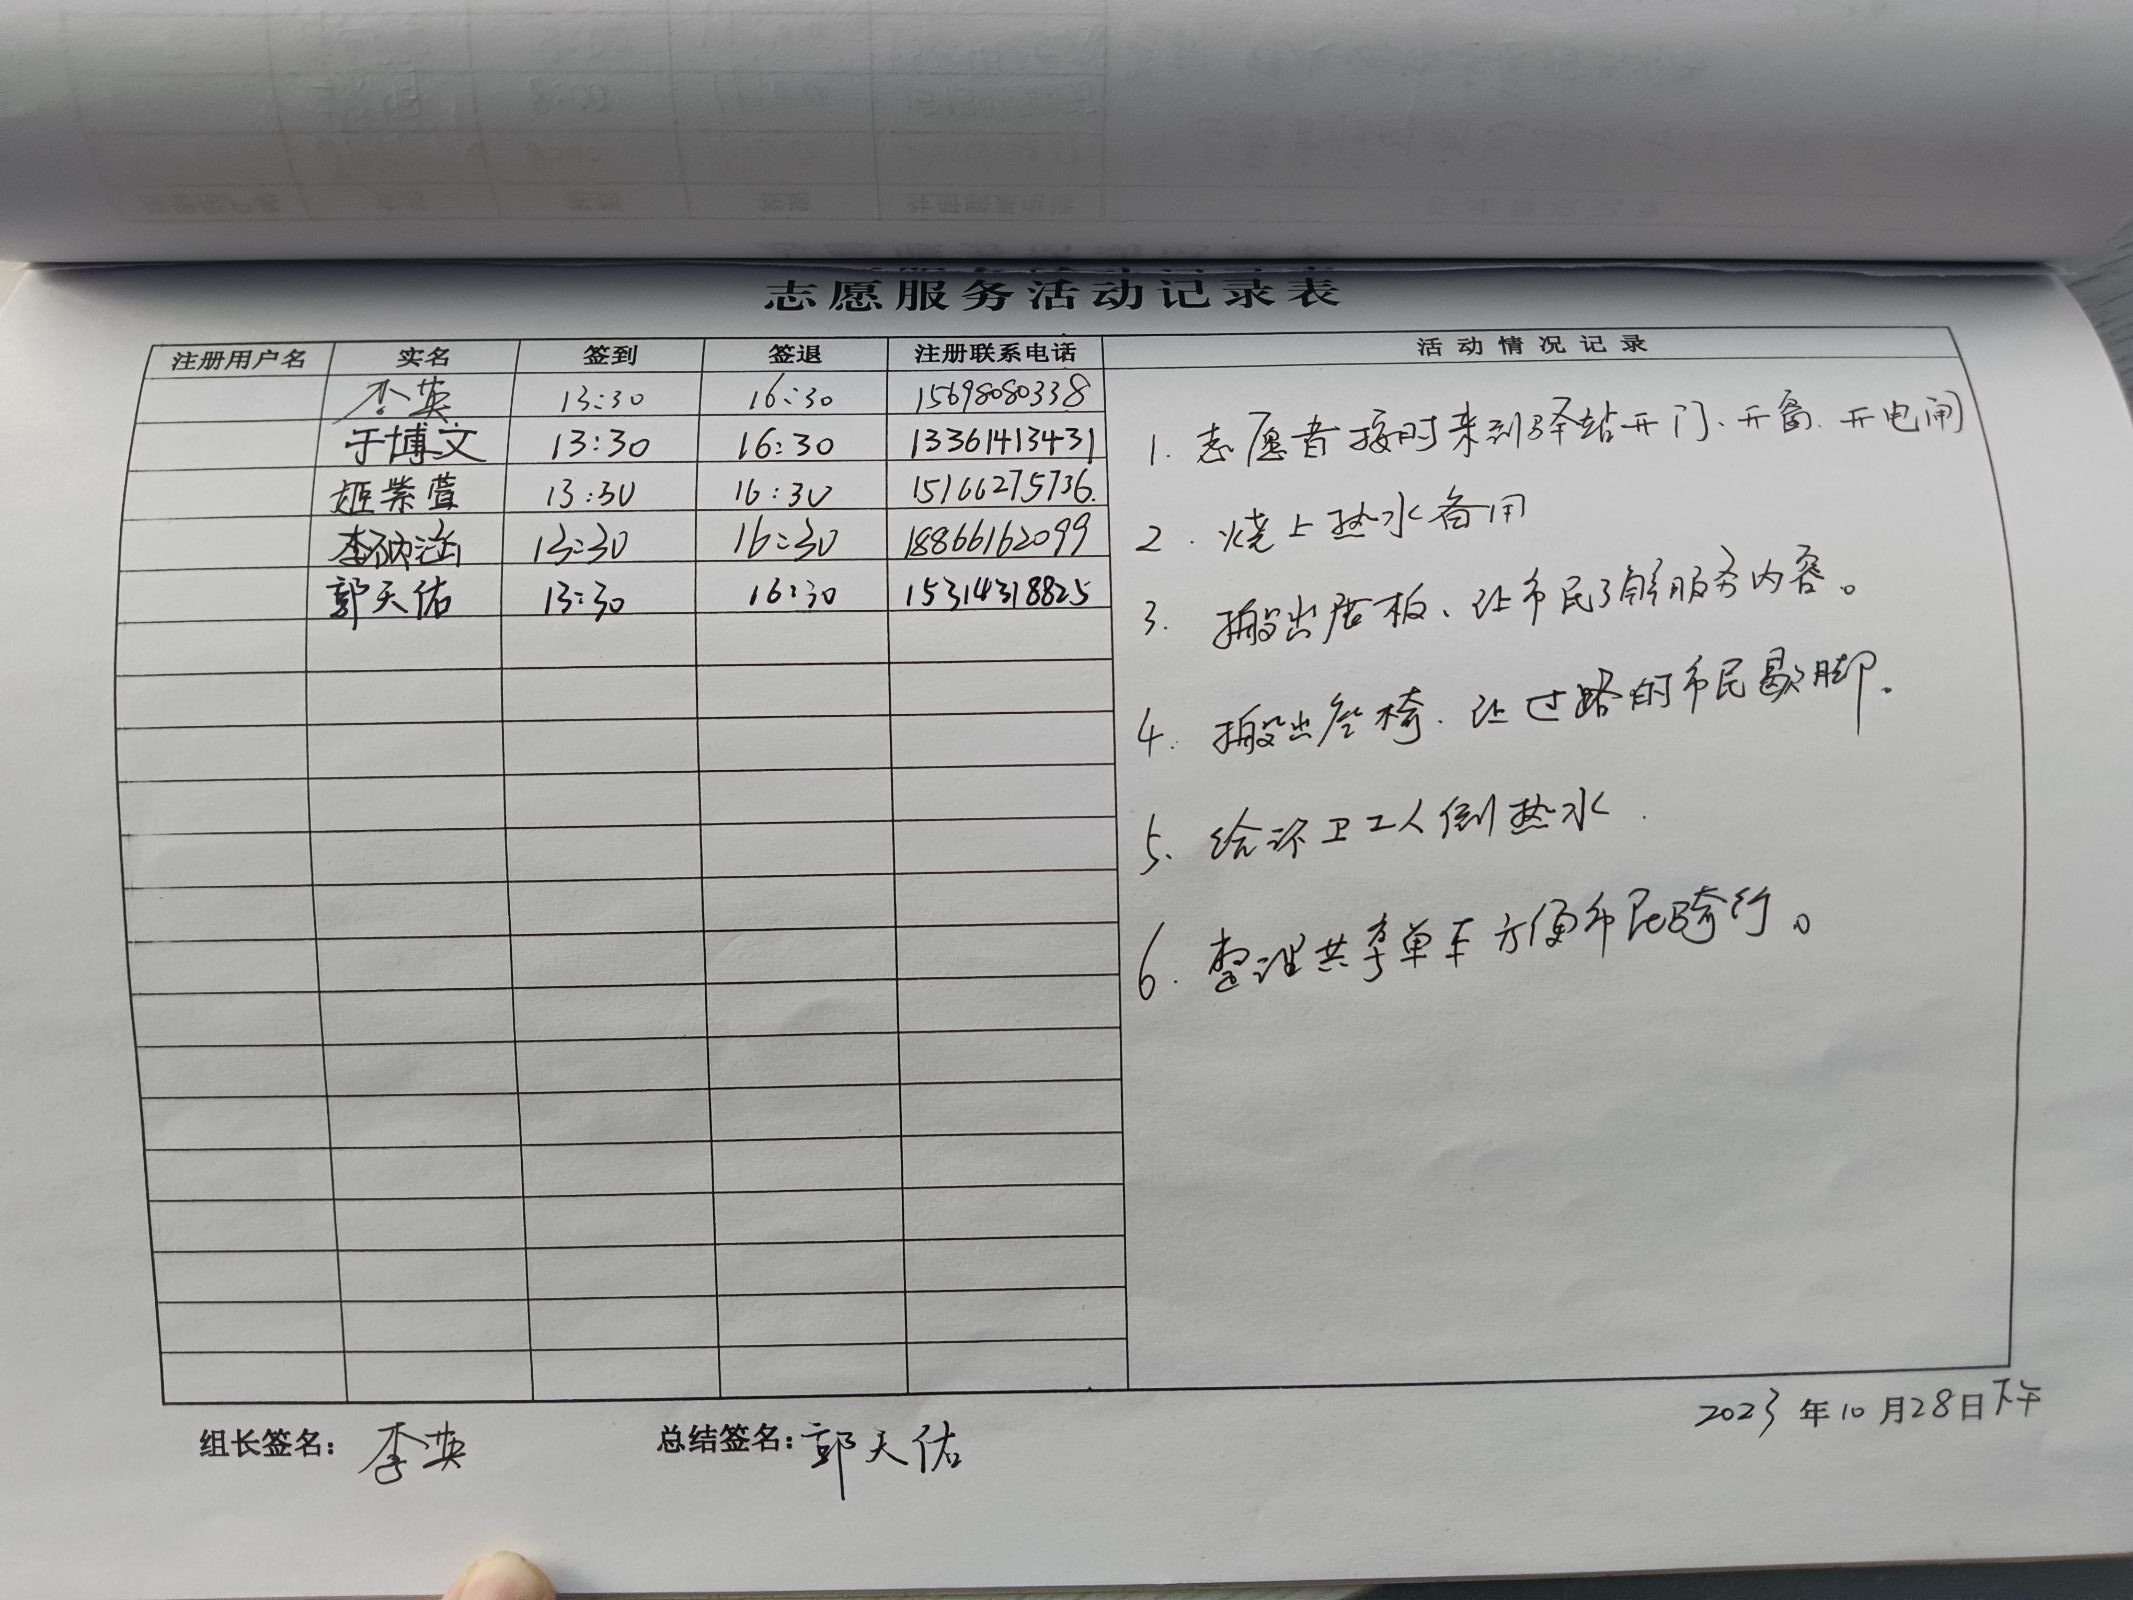 志愿服务活动记录表
注册用户名 实名 签到 签退 注册联系电话 活动情况记录
李英 13:30 16:30 15698080338
于博文 13:30 16:30 13361413431
姬紫萱 13:30 16:30 15166275736.
13:30 16:30 18866162099
郭天佑 13:30 16:30 15314318825
1. 志愿者按时来到驿站开门、开窗、开电闸
2. 烧上热水备用
3. 搬出展板、让市民了解服务内容。
4. 搬出座椅、让过路的市民歇脚.
5. 给环卫工人倒热水.
6. 整理共享单车方便市民骑行。
2023年10月28日下午
组长签名：李英 总结签名：郭天佑